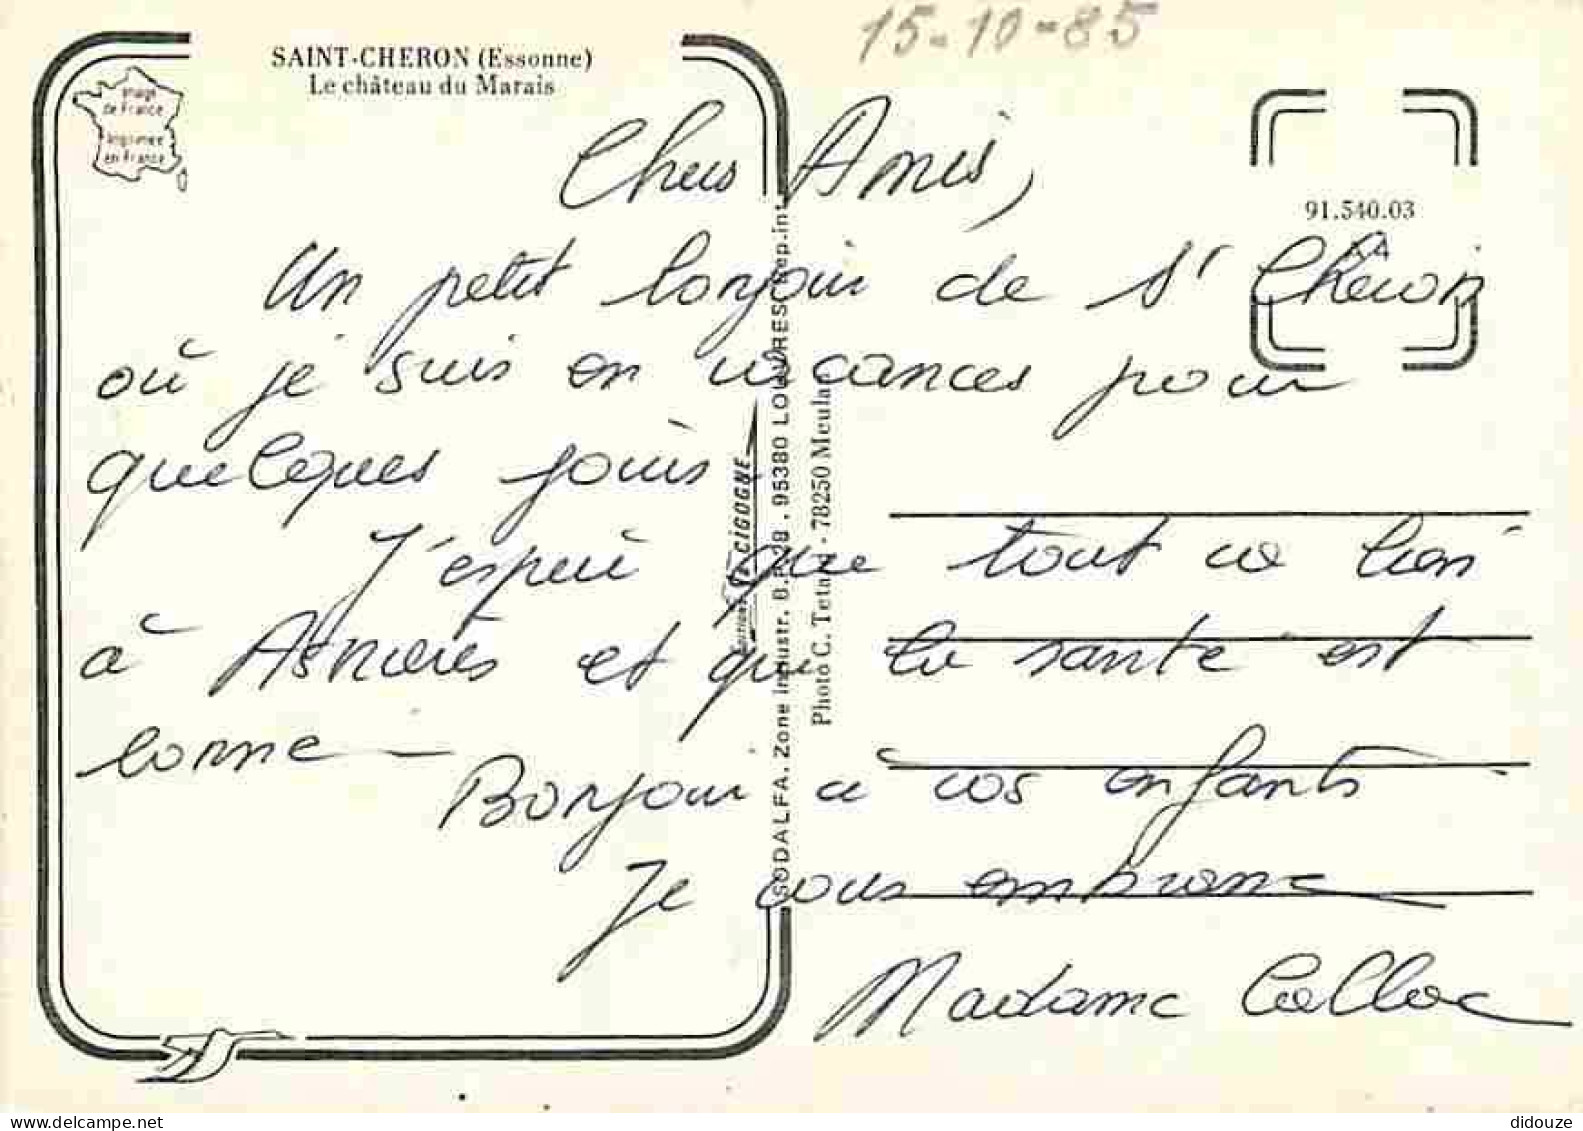 15-10-85
SAINT-CHERON (Essonne)
Le château du Marais
Image
de France
Imprimée
en France
91.540.03
Chers Amis,
Un petit bonjour de St Chéron
où je suis en vacances pour
quelques jours.
J'espère que tout va bien
à Asnières et que la santé est
bonne
Bonjour à vos enfants
Je vous embrasse
Madame Calloc
Editions LA CIGOGNE
SODALFA. Zone Industr. B.P. 28 . 95380 LOUVRES dep.int
Photo C. - 78250 Meulan
didouze